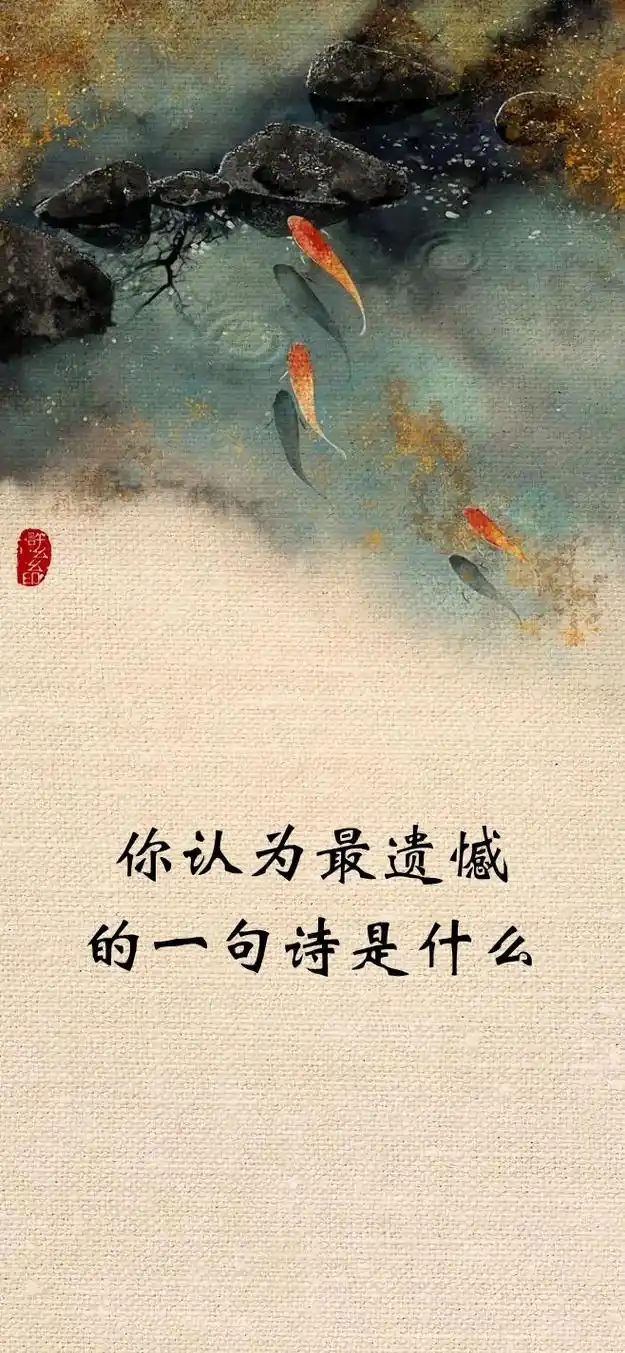 你认为最遗憾
的一句诗是什么